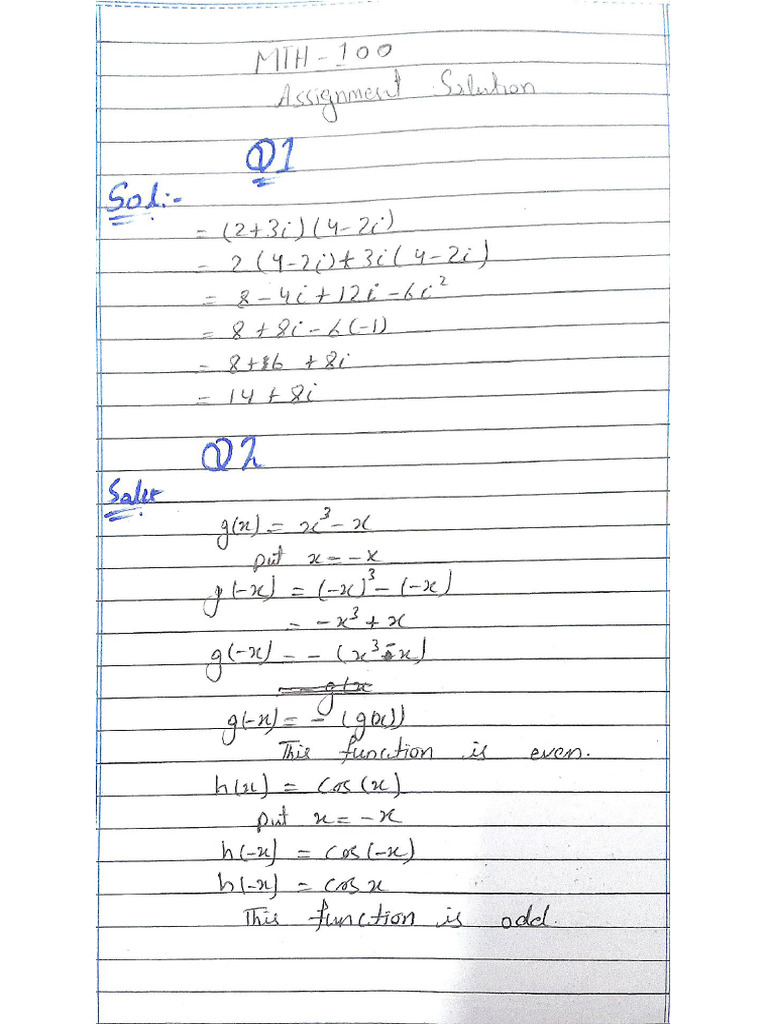 MTH-100
Assignment Solution
Q1
Sol:-
= (2+3i)(4-2i)
= 2(4-2i)+3i(4-2i)
= 8-4i+12i-6i²
= 8+8i-6(-1)
= 8+6+8i
= 14+8i
Q2
g(x) = x³-x
put x=-x
g(-x) = (-x)³-(-x)
= -x³+x
g(-x) = -(x³-x)
g(-x) = -(g(x))
This function is even.
h(x) = cos(x)
put x=-x
h(-x) = cos(-x)
h(-x) = cos x
This function is odd.